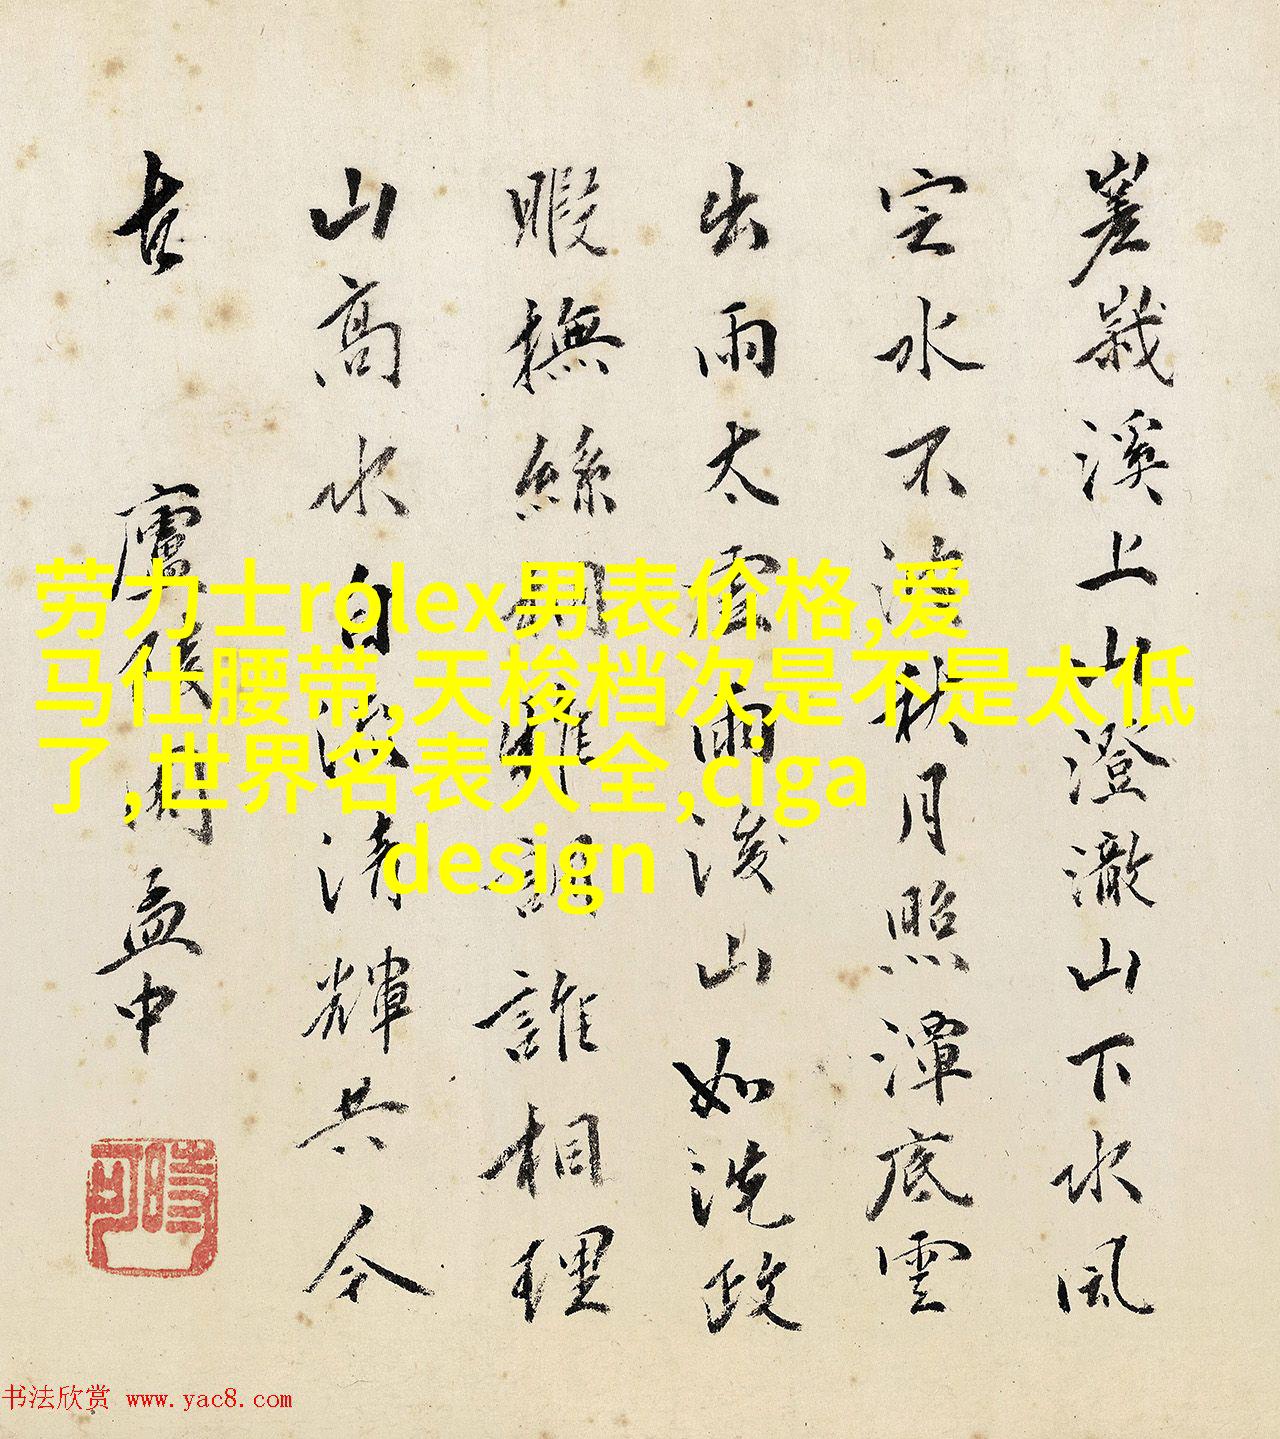 嵳峩溪上山澄澈山下水風
定水不秋月照潭底雲
出雨太雨浚山如洗政
暇撫絲誰相理
山高水自清輝共今
古
孟申
劳力士rolex男表价格,爱
马仕腰带,天梭档次是不是太低
了,世界名表大全,ciga
design
书法欣赏 www.yac8.com